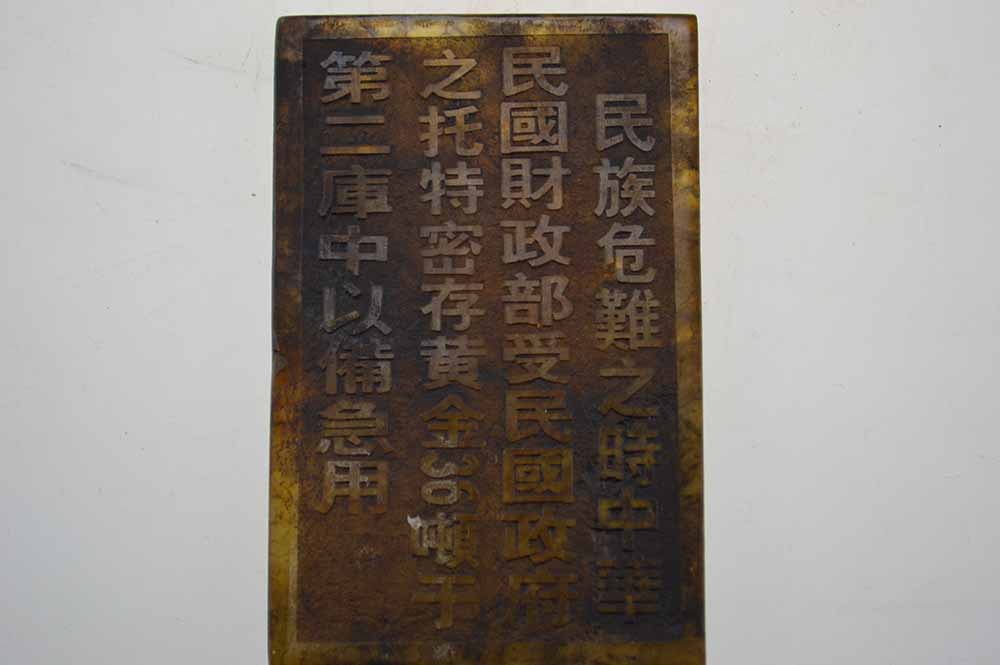 民族危難之時中華
民國財政部受民國政府
之托特密存黄金噸于
第二庫中以備急用